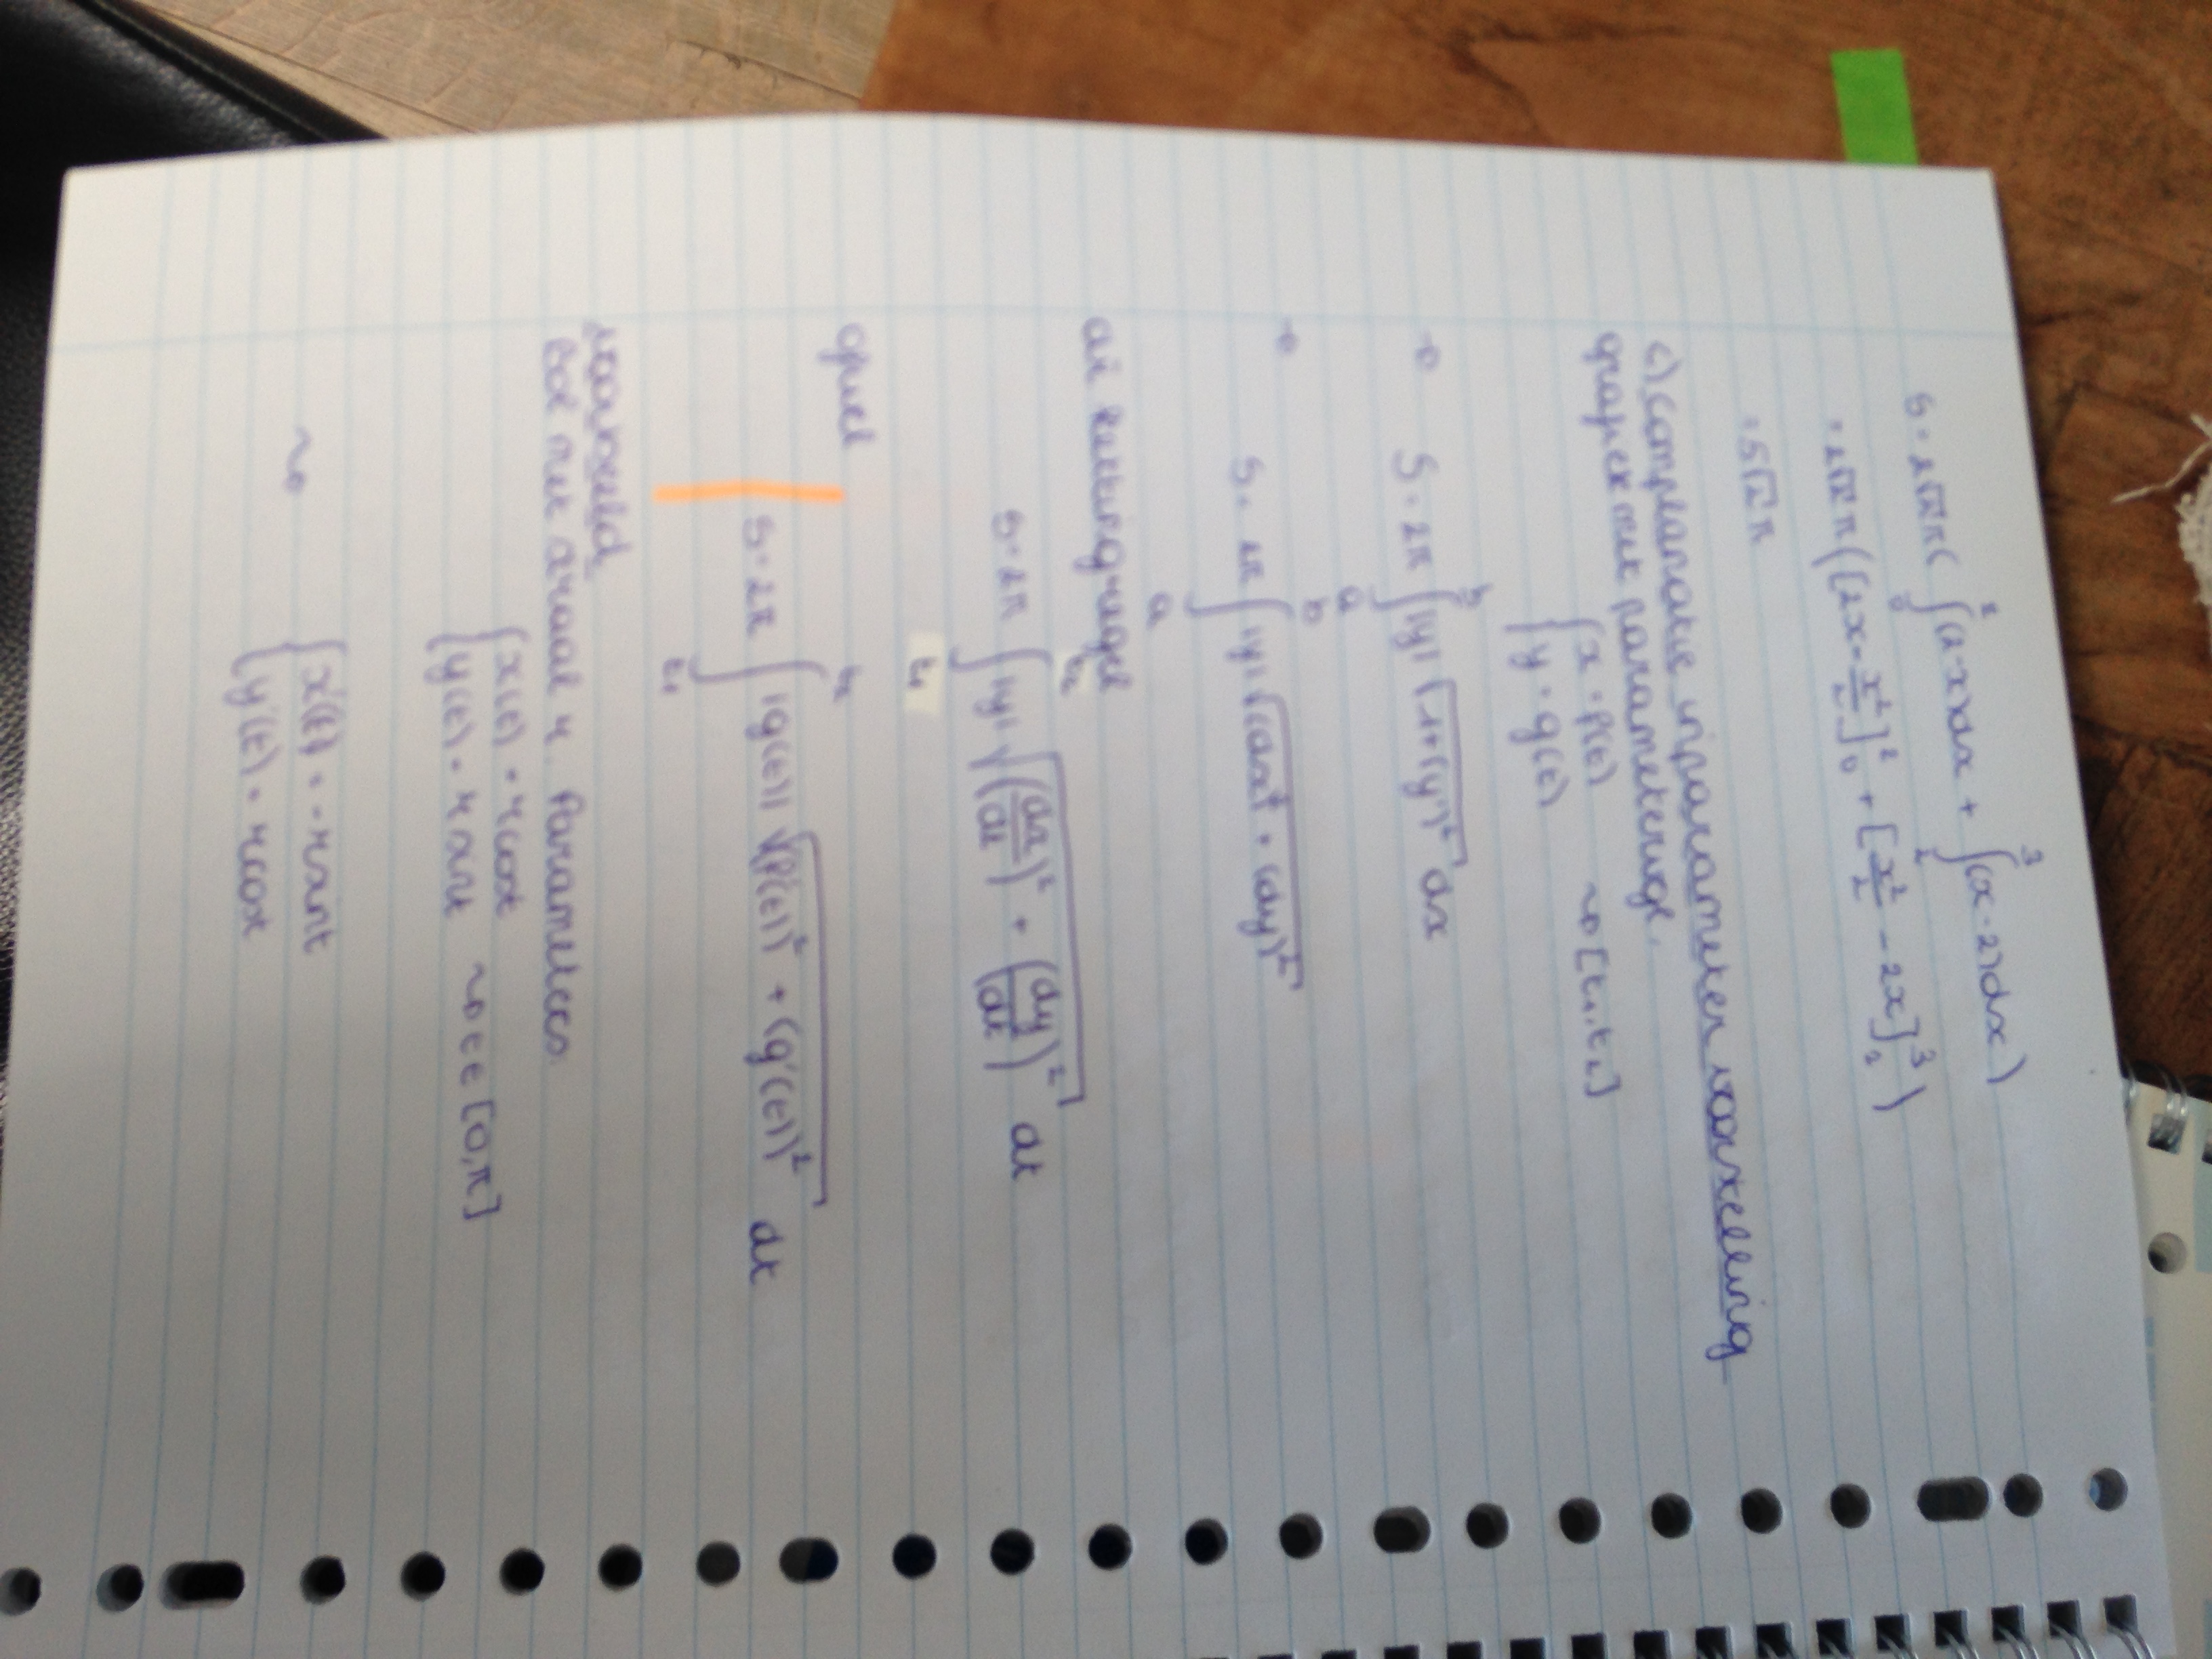 S = 2√2 π ( ∫₀² (2-x)dx + ∫₂³ (x-2)dx )
= 2√2 π ( [2x - x²/2]₀² + [x²/2 - 2x]₂³ )
= 5√2 π
c) Complanatie in parametervoorstelling
grafiek met parametervgl.
{ x = f(t) ⇝ [t₁, t₂]
{ y = g(t)
→ S = 2π ∫ₐᵇ |y| √(1+(y')²) dx
→ S = 2π ∫ₐᵇ |y| √((dx)² + (dy)²)
kettingregel
S = 2π ∫_{t₁}^{t₂} |y| √((dx/dt)² + (dy/dt)²) dt
ofwel
S = 2π ∫_{t₁}^{t₂} |g(t)| √((f'(t))² + (g'(t))²) dt
voorbeeld
Bol met straal r. Parameters
{ x(t) = r cos t
{ y(t) = r sin t ⇝ t ∈ [0,π]
⇝ { x'(t) = -r sin t
{ y'(t) = r cos t